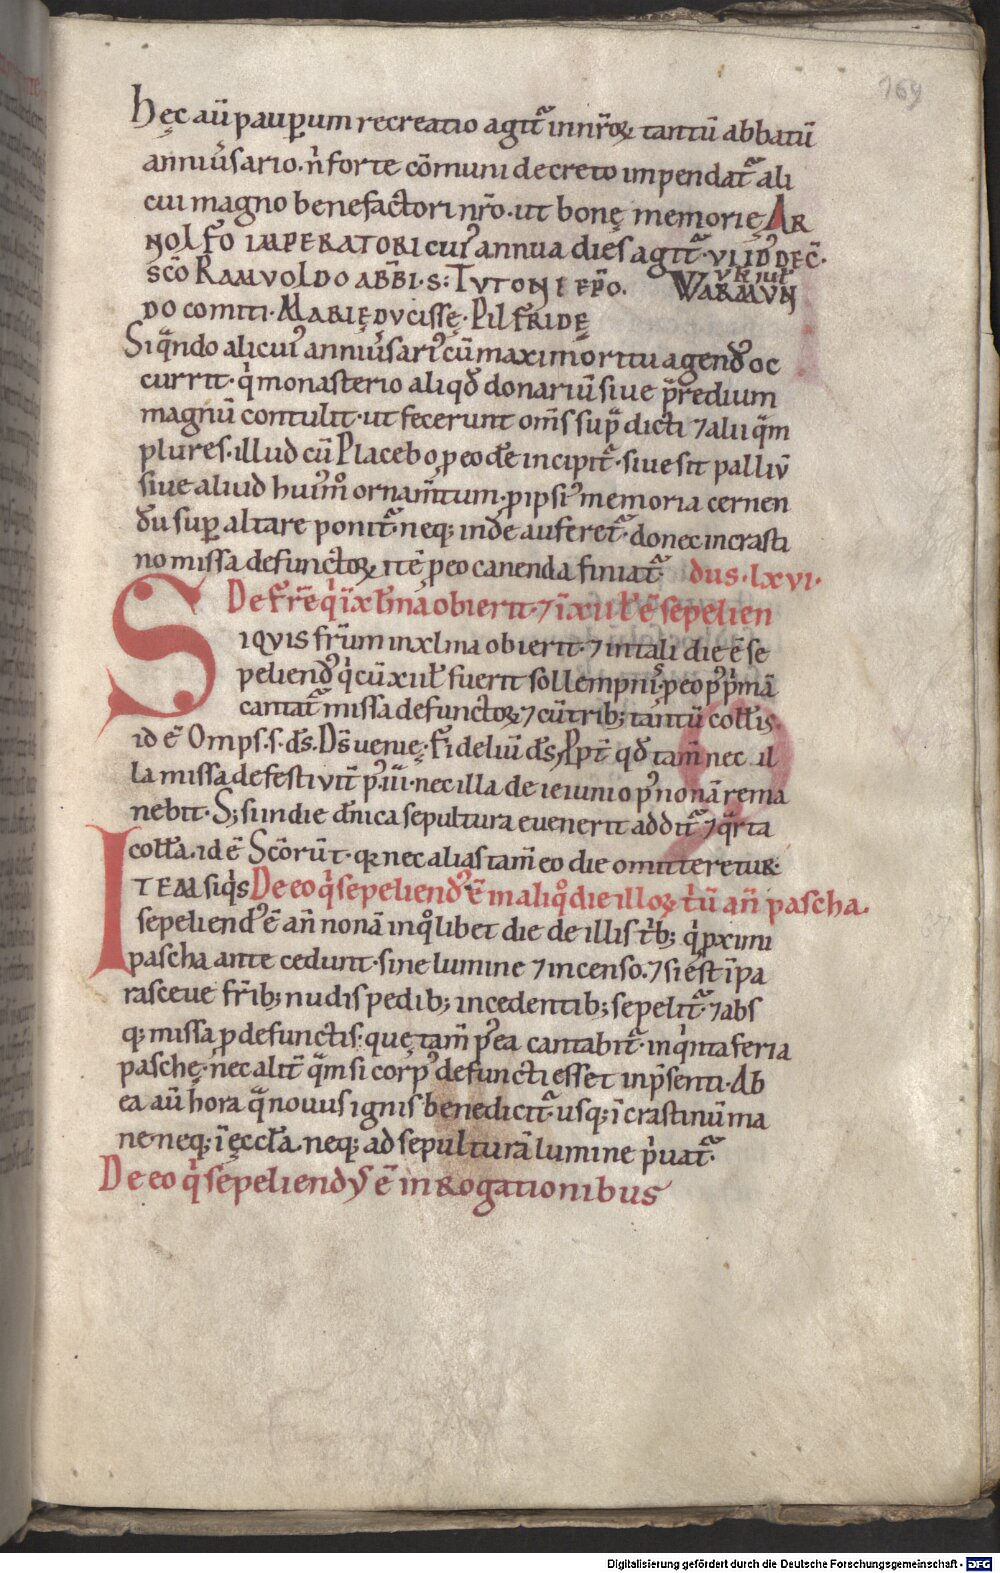 169
hęc aū pauꝑum recreatio agit᷑ in nr̄oꝝ tantū abbatū
anniu̓sario. n̄ forte cōmuni decreto impendat᷑ ali
cui magno benefactori nr̄o. ut bonę memorię AR
NOLFO IMPERATORI cui᷒ annua dies agit᷑. VI ID᷒ DEC̄.
sc̄o RAMVOLDO ABB̄I. S: TVTONI EP̄O. WARMVN
DO comiti. MARIĘ DVCISSĘ. PILFRIDĘ
Si qͣndo alicui᷒ anniu̓sari᷒ cū maximo ritu agend᷒ oc
currit. qͥ monasterio aliqd̄ donariū siue p̄redium
magnū contulit. ut fecerunt om̄s sup̄ dicti ⁊ alii qͣm
plures. illud cū Placebo ꝓ eo d̄e incipit᷑. siue sit palliū
siue aliud hui᷒mͦ ornam̄tum. ꝓ ipsi᷒ memoria cernen
du suꝑ altare ponit᷑. neq; inde auferet᷑. donec in crasti
no missa defunctoꝝ itē ꝓ eo canenda finiat᷑. dus. lxvi.
De fr̄e qͥ ī xl̄ma obierit. ⁊ ī xii lc̄ ē sepelien
Siqvis fr̄um in xlma obierit. ⁊ in tali die ē se
peliend᷒ qͥ cū xii lc̄ fuerit sollempnis. ꝓ eo p᷒ pͥmā
cantat᷑ missa defunctoꝝ. ⁊ cū trib; tantū coll̄is.
id ē Omps. s. ds̄. Ds̄ uenię. Fideliū ds̄. Ppt̄ qd̄ tam̄ nec il
la missa de festivit̄ p᷒ iii. nec illa de ieiunio p᷒ nonā rema
nebit. S; si in die dn̄ica sepultura euenerit addit᷑ ⁊ qͣrta
coll̄a. id ē Sc̄orū t. qr nec alias tam̄ eo die omitteretur.
ITEM siqͥs De eo qͥ sepeliend᷒ ē in aliqͦ die illoꝝ tͥū an̄ pascha.
sepeliend᷒ ē an̄ nonā in qͦlibet die de illis tͥb; qͥ ꝓximi
pascha ante cedunt. sine lumine ⁊ incenso. ⁊ si est ī pa
rasceue fr̄ib; nudis pedib; incedentib; sepelit᷑. ⁊ abs
q; missa ꝓ defunctis: quę tam̄ p᷒ea cantabit᷑. in qͥnta feria
paschę. nec alit̄ qͣm si corp᷒ defuncti esset in p̄senti. Ab
ea aū hora qͣ novus ignis benedicit᷑ usq; ī crastinū ma
ne. neq; ī ęccl̄a. neq; ad sepulturā lumine pͥuat᷑.
De eo qͥ sepeliendvs ē in rogationibus
Digitalisierung gefördert durch die Deutsche Forschungsgemeinschaft - DFG